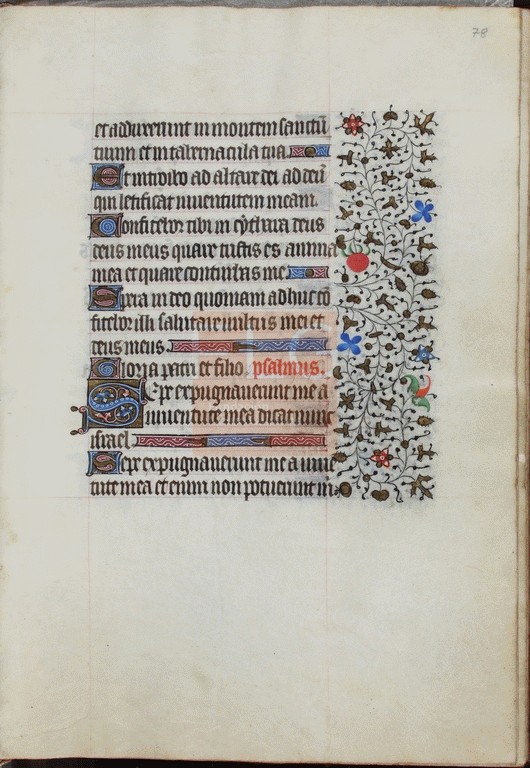 78
et adduxerunt in montem sanctū
tuum et in tabernacula tua.
Et introibo ad altare dei ad deū
qui letificat iuuentutem meam.
Confitebor tibi in cythara deus
deus meus quare tristis es anima
mea et quare conturbas me.
Spera in deo quoniam adhuc cō
fitebor illi salutare uultus mei et
deus meus.
Gloria patri et filio. psalmus.
Sepe expugnauerunt me a
iuuentute mea dicat nunc
israel.
Sepe expugnauerunt me a iuue
tute mea et enim non potuerunt m